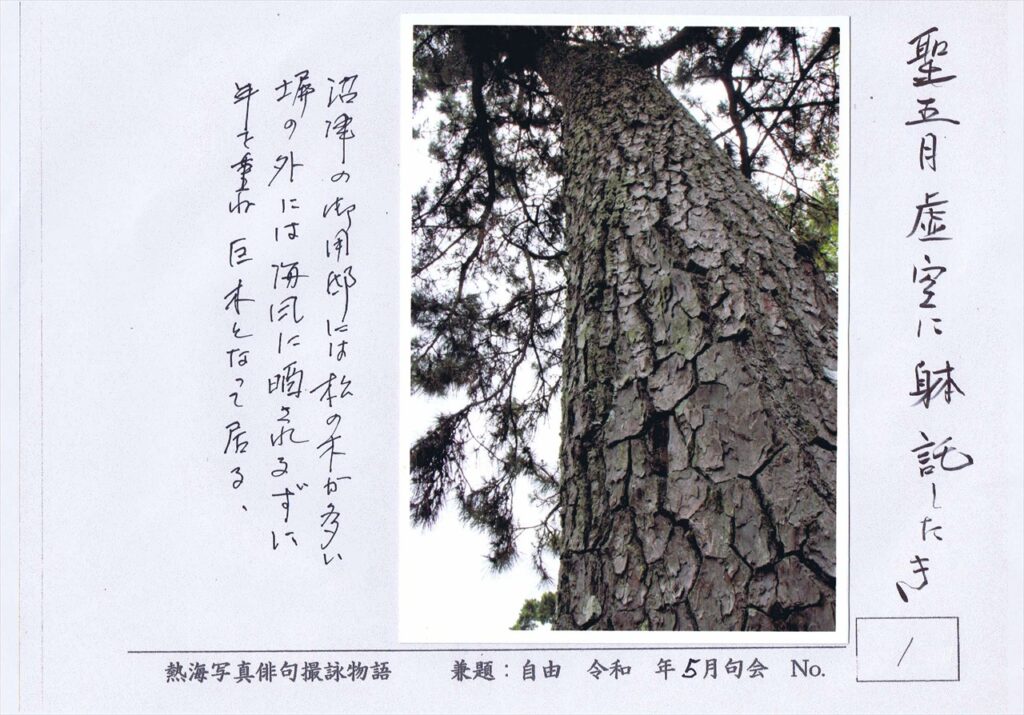 聖五月虚空に躰託したき
沼津の御用邸には松の木が多い
塀の外には海風に晒されるずに
年を重ね巨木となって居る、
熱海写真俳句撮詠物語 兼題：自由 令和 年5月句会 No. 1